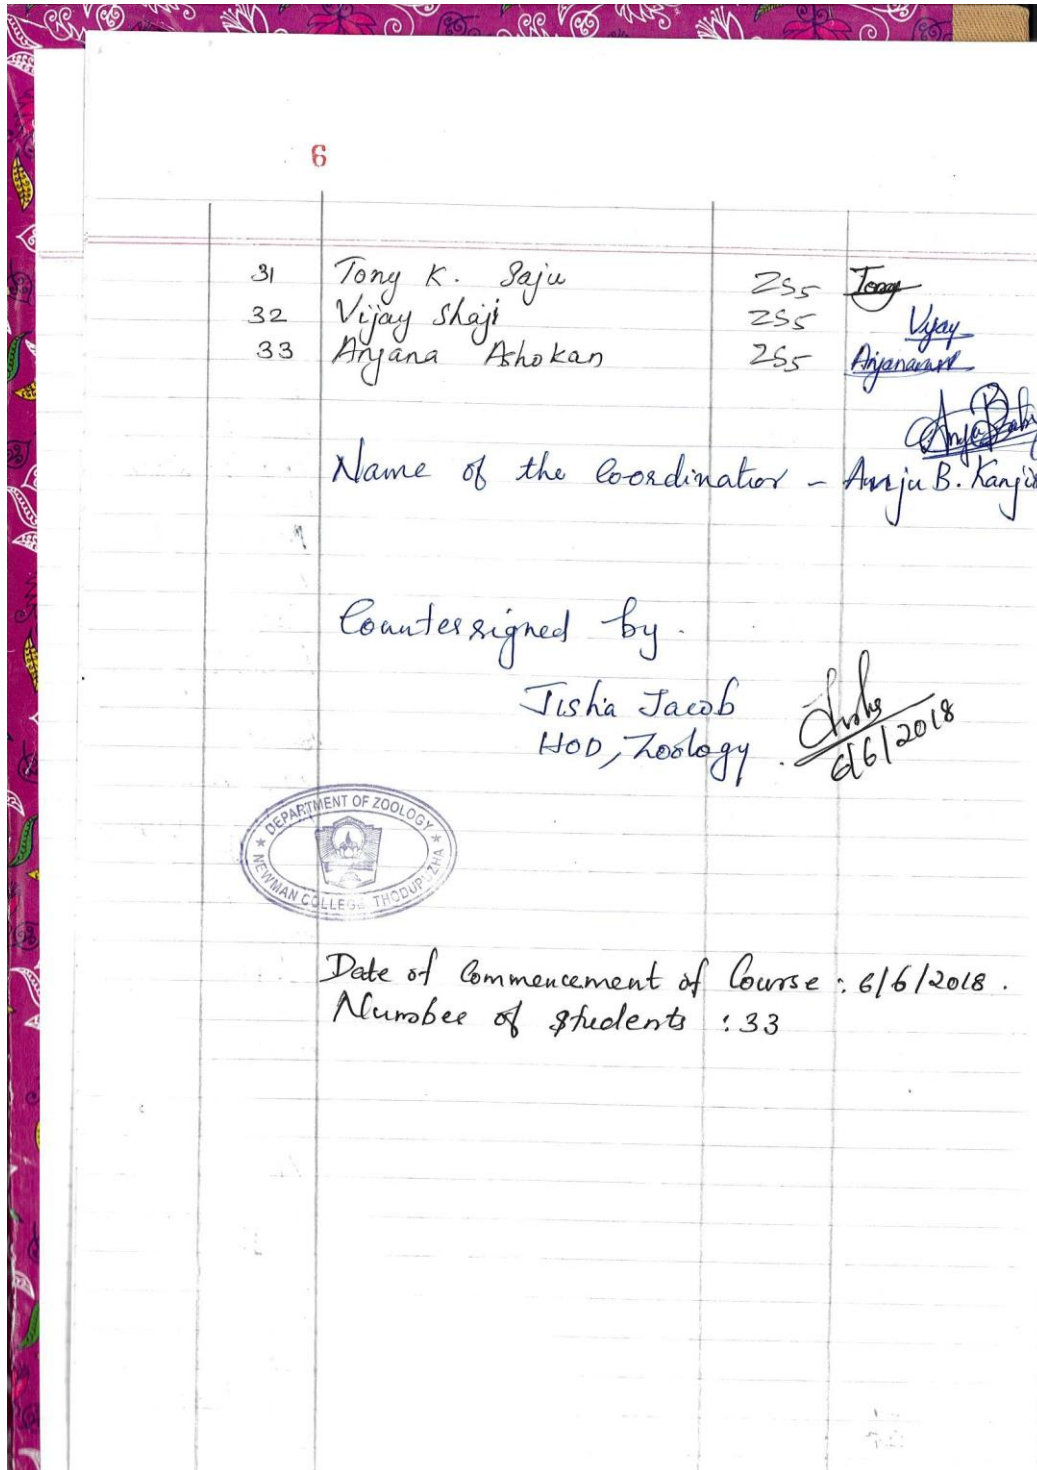 6
31 Tony K. Saju ZS5 Tony
32 Vijay Shaji ZS5 Vijay
33 Anjana Ashokan ZS5
Name of the Coordinatior - Anju B.
Countersigned by.
Jisha Jacob
HOD, Zoology.
6/6/2018
★ DEPARTMENT OF ZOOLOGY ★
NEWMAN COLLEGE THODUPUZHA
Date of Commencement of Course : 6/6/2018.
Number of students : 33